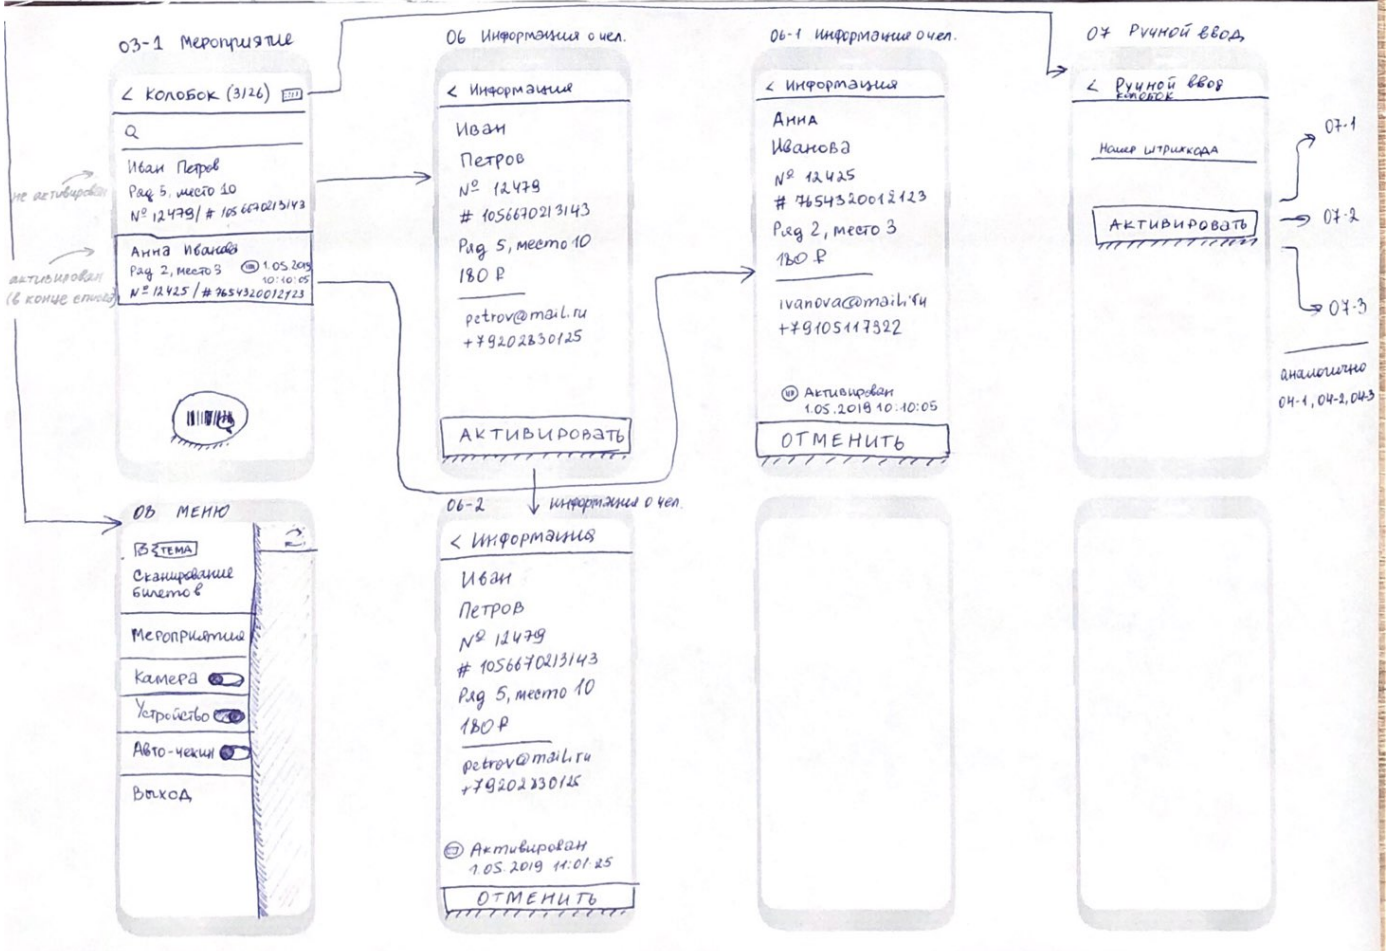 03-1 Мероприятие
< КОЛОБОК (3/26)
Иван Петров
Ряд 5, место 10
№ 12479/ # 1056670213143
Анна Иванова
Ряд 2, место 3
1.05.2019
10:10:05
№ 12425 / # 7654320012123
не активирован
активирован
(в конце списка)
06 Информация о чел.
< Информация
Иван
Петров
№ 12479
# 1056670213143
Ряд 5, место 10
180 ₽
petrov@mail.ru
+79202830125
АКТИВИРОВАТЬ
06-1 Информация о чел.
< Информация
Анна
Иванова
№ 12425
# 7654320012123
Ряд 2, место 3
180 ₽
ivanova@mail.ru
+79105117322
Активирован
1.05.2019 10:10:05
ОТМЕНИТЬ
07 Ручной ввод
< Ручной ввод
КОЛОБОК
Номер штрихкода
АКТИВИРОВАТЬ
07-1
07-2
07-3
аналогично
04-1, 04-2, 04-3
08 МЕНЮ
ТЕМА
Сканирование
билетов
Мероприятия
Камера
Устройство
Авто-чекин
Выход
06-2 Информация о чел.
< Информация
Иван
Петров
№ 12479
# 1056670213143
Ряд 5, место 10
180 ₽
petrov@mail.ru
+79202830125
Активирован
1.05.2019 11:01:25
ОТМЕНИТЬ